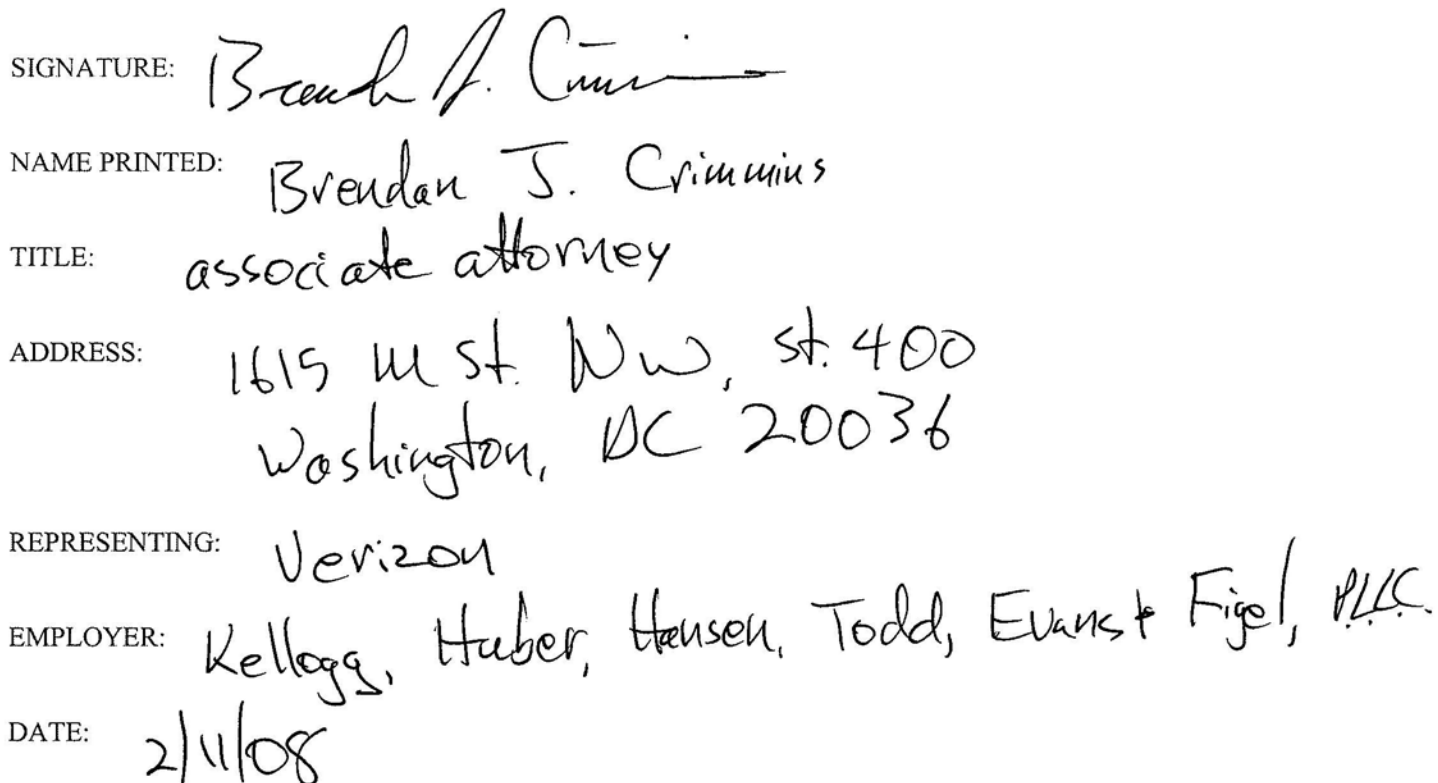 SIGNATURE: Brendan J. Crimmins
NAME PRINTED: Brendan J. Crimmins
TITLE: associate attorney
ADDRESS: 1615 M St. NW, St. 400
Washington, DC 20036
REPRESENTING: Verizon
EMPLOYER: Kellogg, Huber, Hansen, Todd, Evans & Figel, P.L.L.C.
DATE: 2/11/08